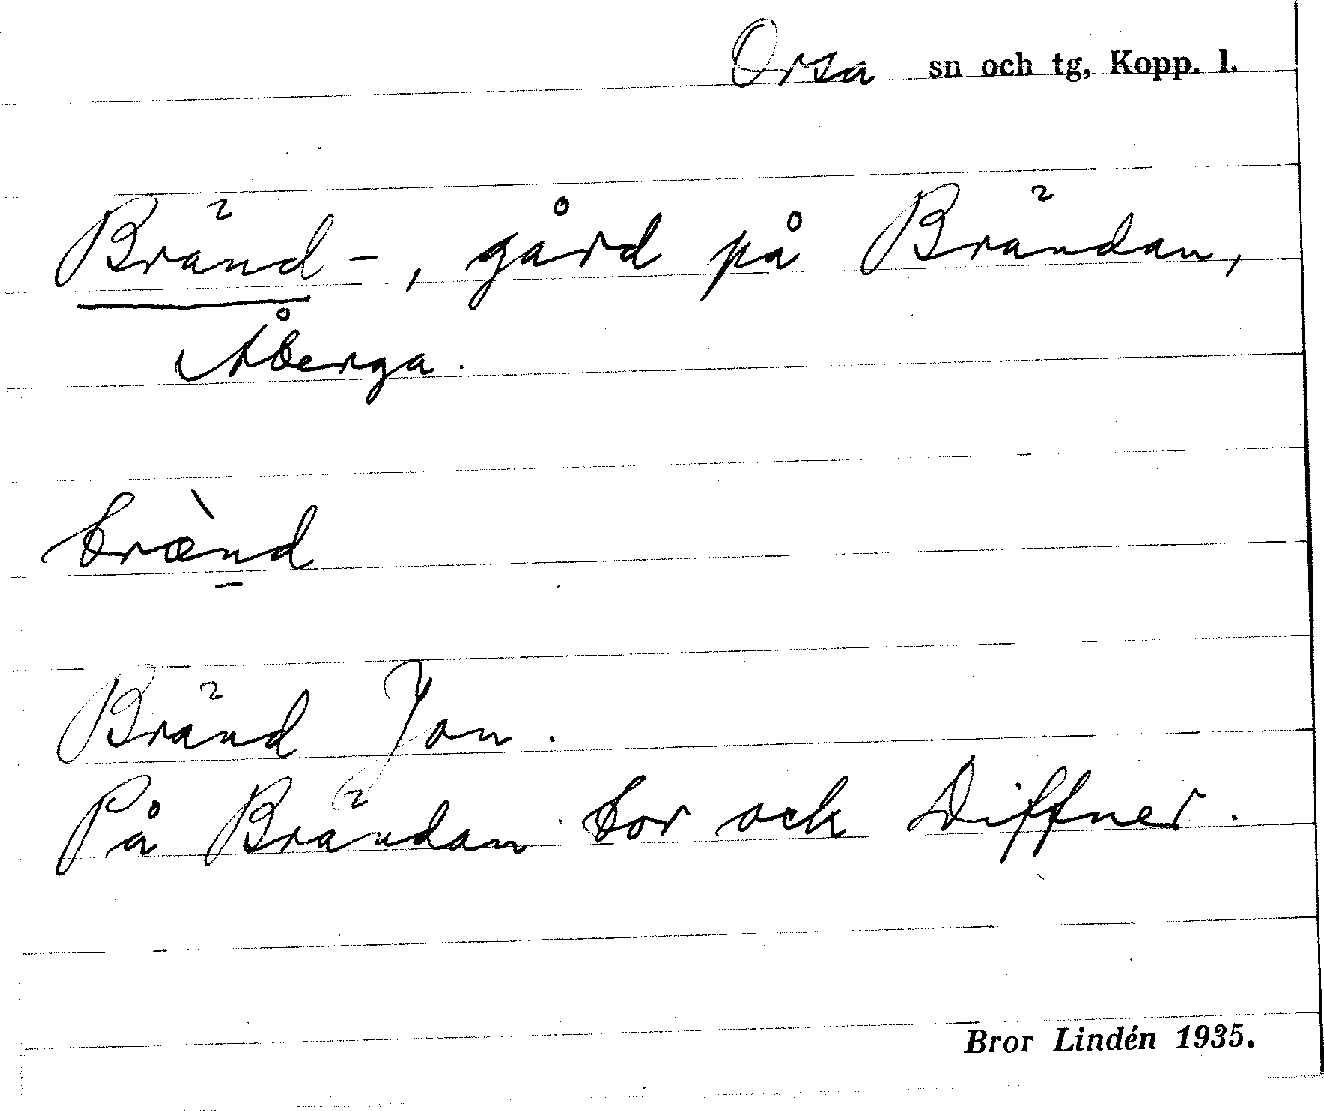 Orsa sn och tg, Kopp. l.
Bränd-, gård på Brändan,
Åberga.
bræ̀nd
Bränd Jon.
På Brändan bor ock Diffner.
Bror Lindén 1935.